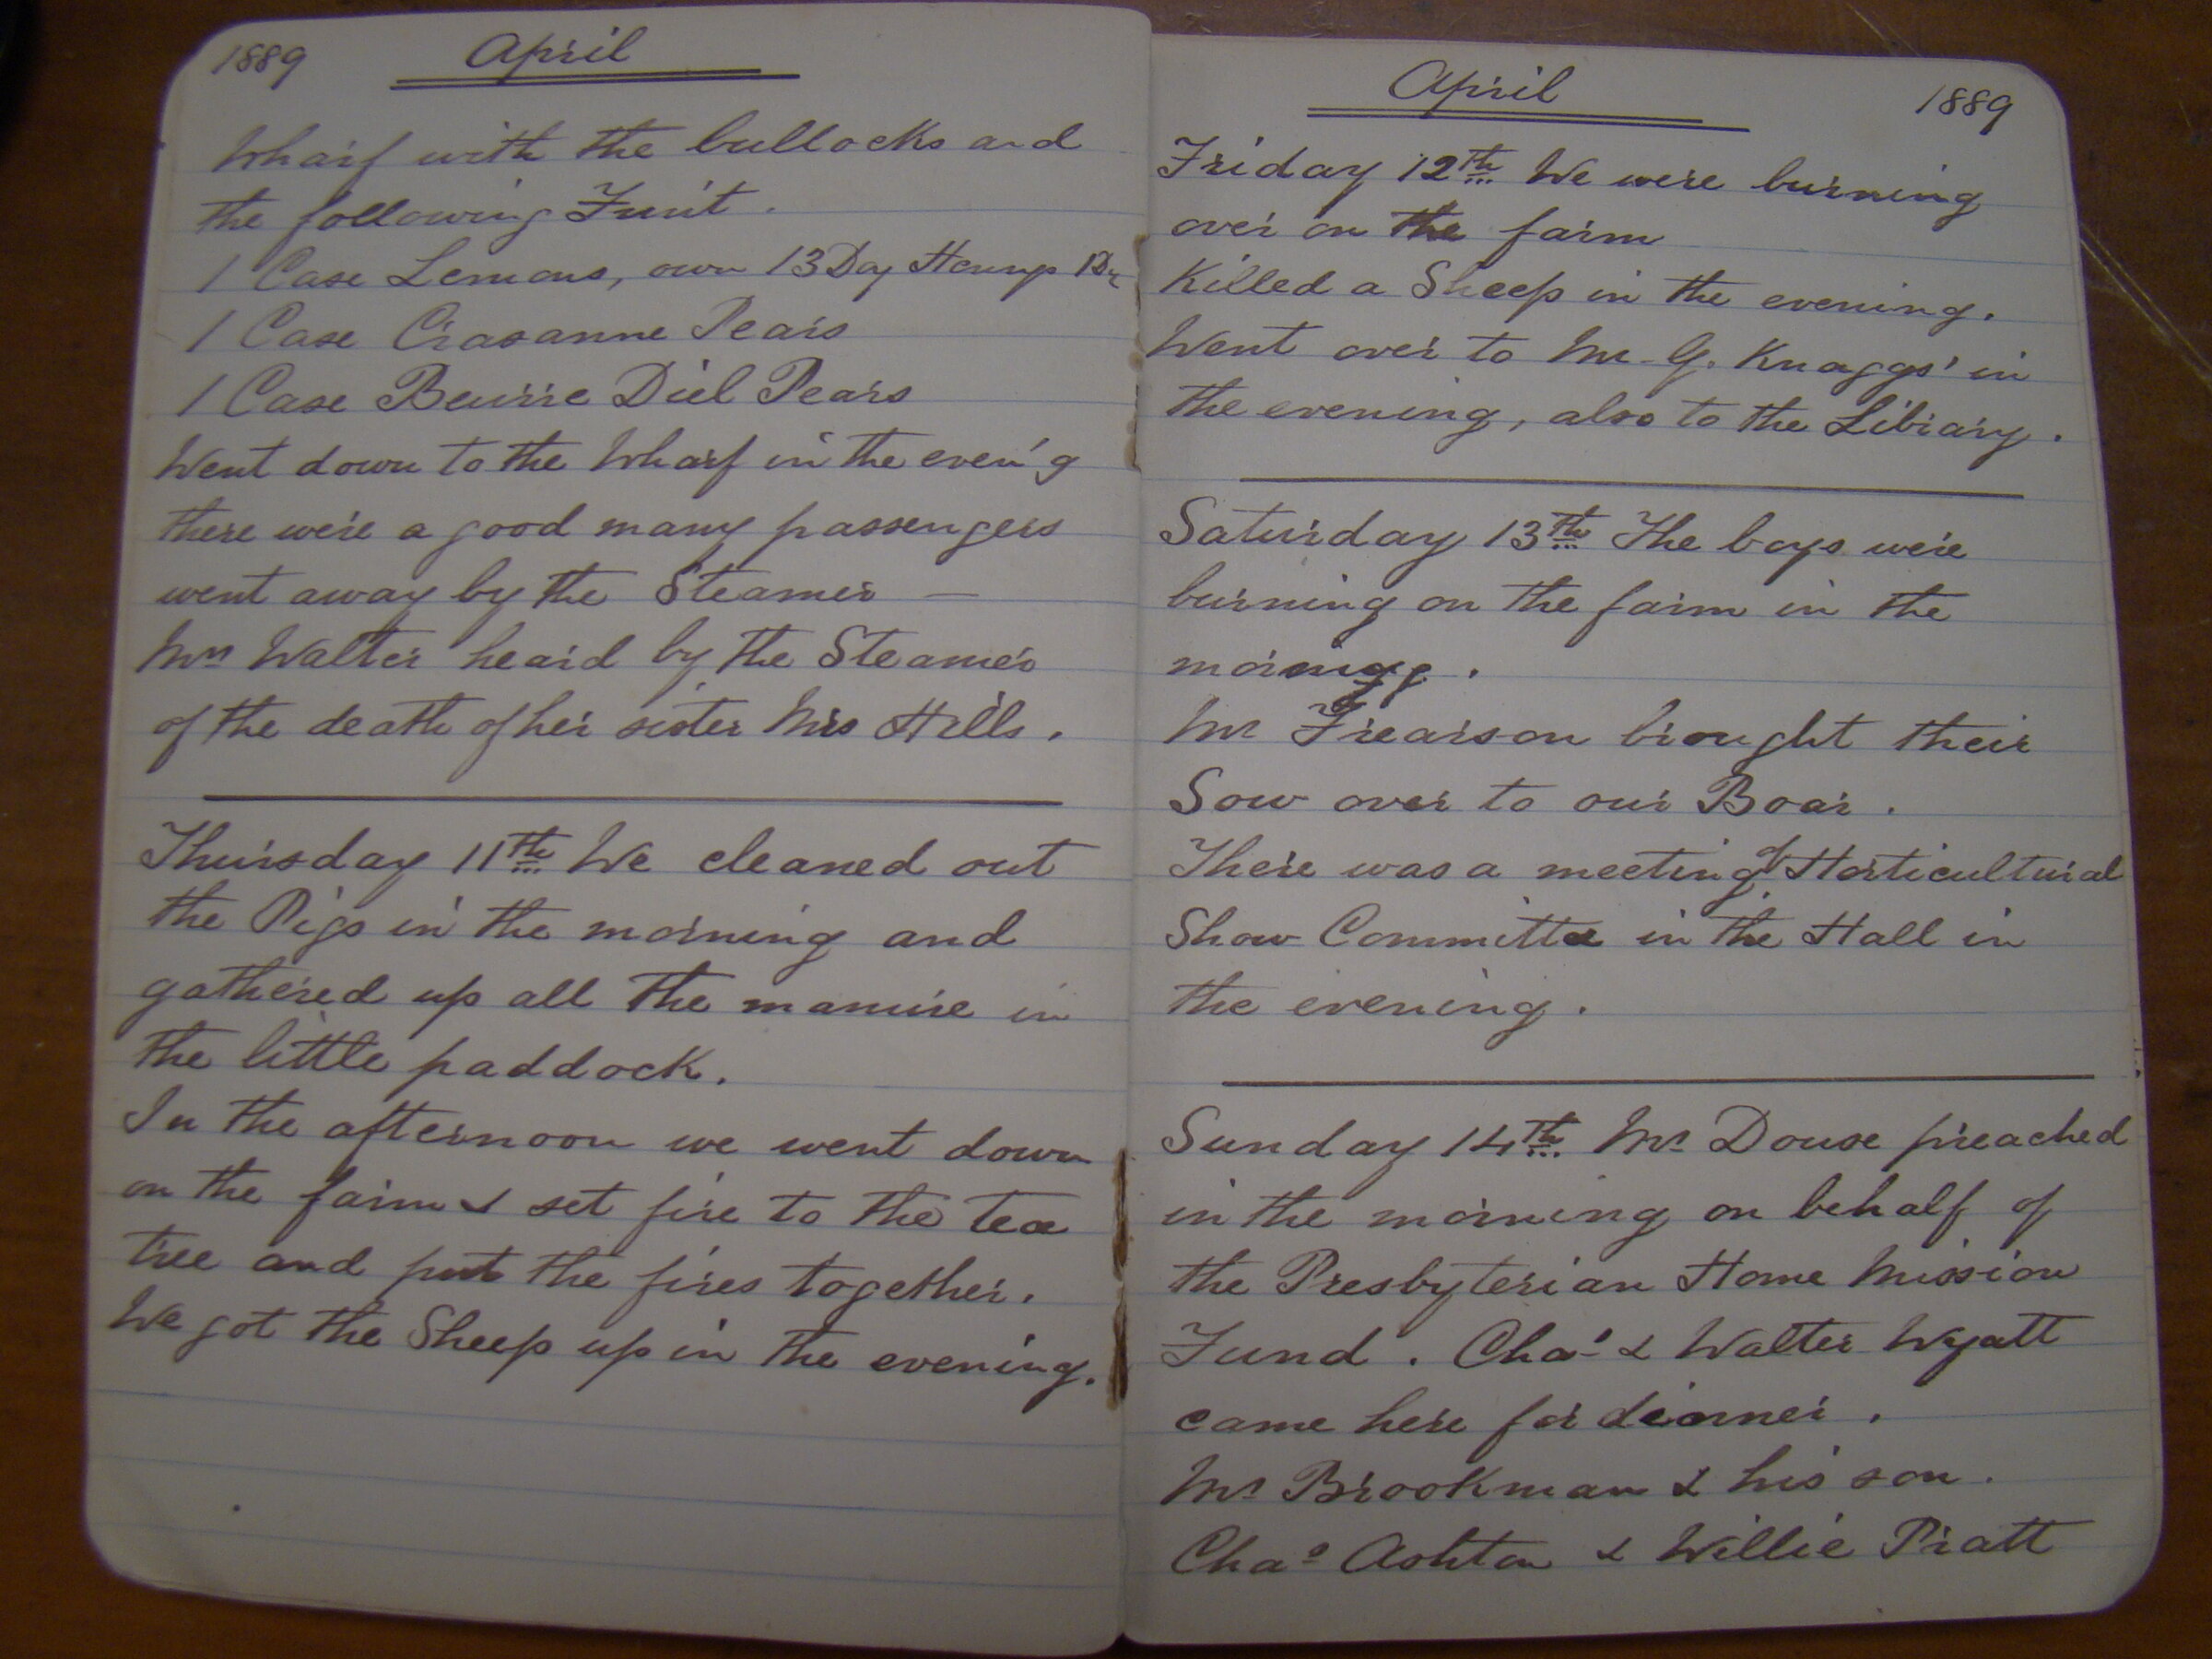 1889 April
Wharf with the bullocks and
the following Fruit.
1 Case Lemons, own 13 Doz
1 Case Crasanne Pears
1 Case Beurre Diel Pears
Went down to the Wharf in the even'g
there were a good many passengers
went away by the Steamer —
Mrs Walter heard by the Steamer
of the death of her sister Mrs Hills.
Thursday 11th We cleaned out
the Pigs in the morning and
gathered up all the manure in
the little paddock.
In the afternoon we went down
on the farm & set fire to the tea
tree and put the fires together.
We got the Sheep up in the evening.
April 1889
Friday 12th We were burning
over on the farm
Killed a Sheep in the evening.
Went over to Mr G. Knaggs' in
the evening, also to the Library.
Saturday 13th The boys were
burning on the farm in the
morning.
Mr Frearson brought their
Sow over to our Boar.
There was a meeting of Horticultural
Show Committee in the Hall in
the evening.
Sunday 14th Mr Douse preached
in the morning on behalf of
the Presbyterian Home Mission
Fund. Chas & Walter Wyatt
came here for dinner.
Mr Brookman & his son.
Chas Ashton & Willie Pratt